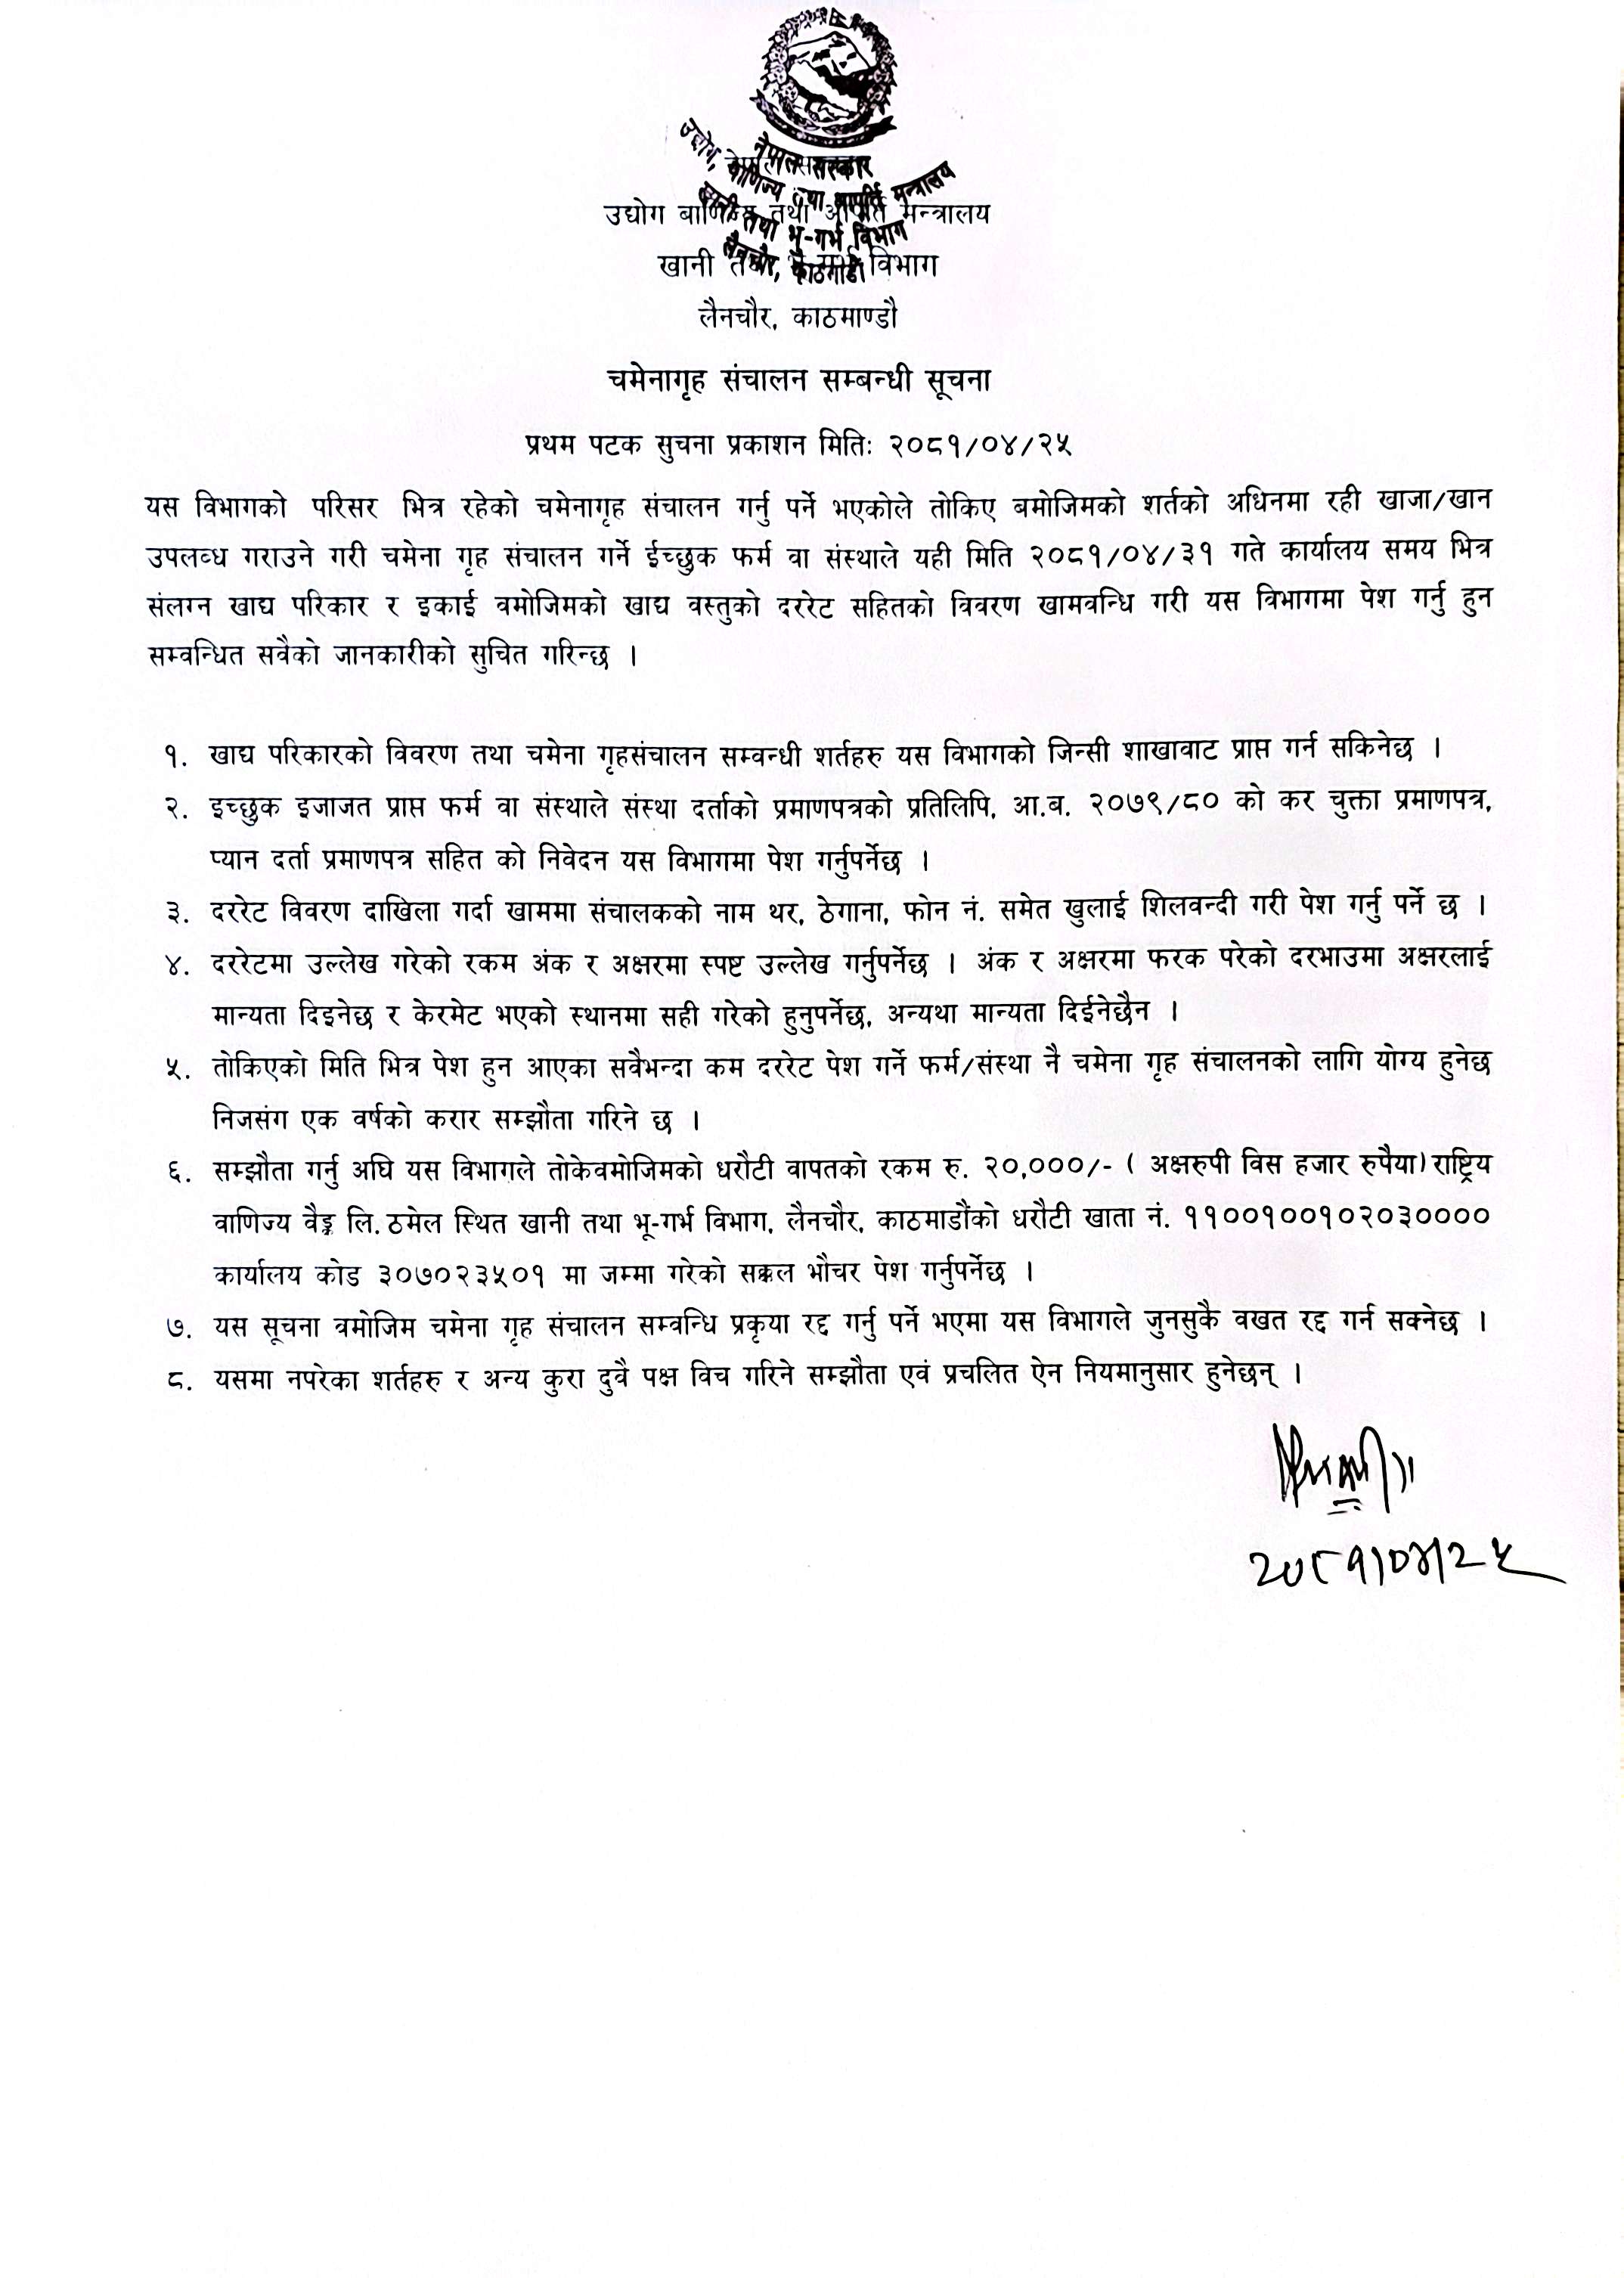 नेपाल सरकार
उद्योग, वाणिज्य तथा आपूर्ति मन्त्रालय
खानी तथा भु-गर्भ विभाग
लैनचौर, काठमाडौं
उद्योग बाणिज्य तथा आपूर्ति मन्त्रालय
खानी तथा विभाग
लैनचौर, काठमाण्डौ
चमेनागृह संचालन सम्बन्धी सूचना
प्रथम पटक सुचना प्रकाशन मितिः २०८१/०४/२५
यस विभागको परिसर भित्र रहेको चमेनागृह संचालन गर्नु पर्ने भएकोले तोकिए बमोजिमको शर्तको अधिनमा रही खाजा/खान
उपलब्ध गराउने गरी चमेना गृह संचालन गर्ने ईच्छुक फर्म वा संस्थाले यही मिति २०८१/०४/३१ गते कार्यालय समय भित्र
संलग्न खाद्य परिकार र इकाई वमोजिमको खाद्य वस्तुको दररेट सहितको विवरण खामवन्धि गरी यस विभागमा पेश गर्नु हुन
सम्वन्धित सवैको जानकारीको सुचित गरिन्छ ।
१. खाद्य परिकारको विवरण तथा चमेना गृहसंचालन सम्वन्धी शर्तहरु यस विभागको जिन्सी शाखावाट प्राप्त गर्न सकिनेछ ।
२. इच्छुक इजाजत प्राप्त फर्म वा संस्थाले संस्था दर्ताको प्रमाणपत्रको प्रतिलिपि, आ.ब. २०७९/८० को कर चुक्ता प्रमाणपत्र,
प्यान दर्ता प्रमाणपत्र सहित को निवेदन यस विभागमा पेश गर्नुपर्नेछ ।
३. दररेट विवरण दाखिला गर्दा खाममा संचालकको नाम थर, ठेगाना, फोन नं. समेत खुलाई शिलवन्दी गरी पेश गर्नु पर्ने छ ।
४. दररेटमा उल्लेख गरेको रकम अंक र अक्षरमा स्पष्ट उल्लेख गर्नुपर्नेछ । अंक र अक्षरमा फरक परेको दरभाउमा अक्षरलाई
मान्यता दिइनेछ र केरमेट भएको स्थानमा सही गरेको हुनुपर्नेछ, अन्यथा मान्यता दिईनेछैन ।
५. तोकिएको मिति भित्र पेश हुन आएका सवैभन्दा कम दररेट पेश गर्ने फर्म/संस्था नै चमेना गृह संचालनको लागि योग्य हुनेछ
निजसंग एक वर्षको करार सम्झौता गरिने छ ।
६. सम्झौता गर्नु अघि यस विभागले तोकेवमोजिमको धरौटी वापतको रकम रु. २०,०००/- ( अक्षरुपी विस हजार रुपैया) राष्ट्रिय
वाणिज्य वैङ्क लि. ठमेल स्थित खानी तथा भू-गर्भ विभाग, लैनचौर, काठमाडौंको धरौटी खाता नं. ११००१००१०२०३००००
कार्यालय कोड ३०७०२३५०१ मा जम्मा गरेको सक्कल भौचर पेश गर्नुपर्नेछ ।
७. यस सूचना वमोजिम चमेना गृह संचालन सम्वन्धि प्रकृया रद्द गर्नु पर्ने भएमा यस विभागले जुनसुकै वखत रद्द गर्न सक्नेछ ।
८. यसमा नपरेका शर्तहरु र अन्य कुरा दुवै पक्ष विच गरिने सम्झौता एवं प्रचलित ऐन नियमानुसार हुनेछन् ।
२०८१/०४/२५